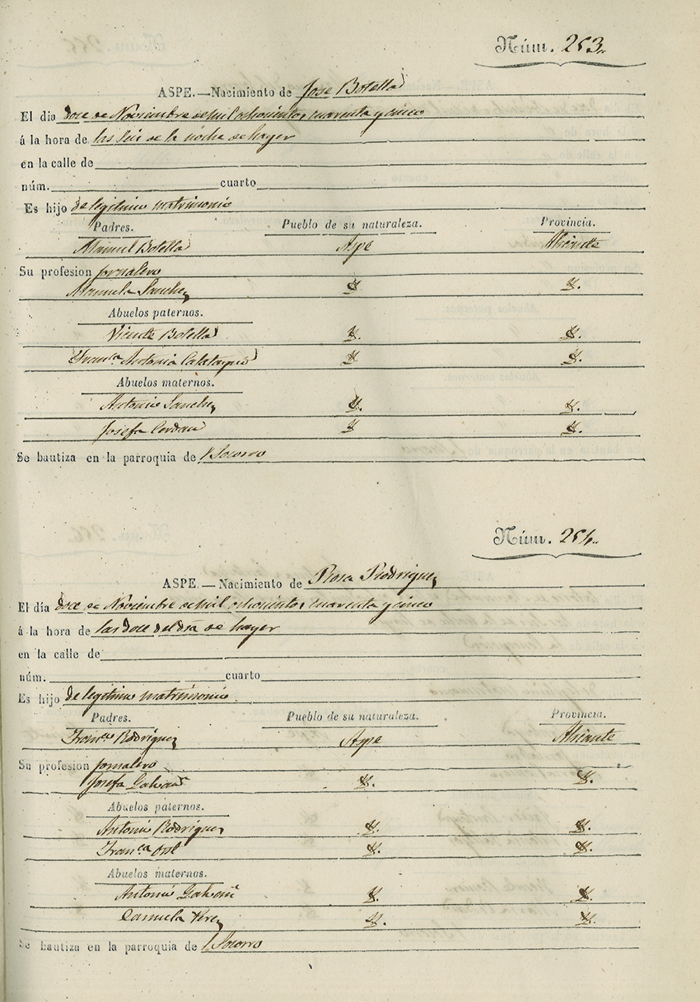 Núm. 253.
ASPE.—Nacimiento de Jose Botella
El dia doce de Noviembre de mil ochocientos cuarenta y cinco
á la hora de las seis de la noche de hayer
en la calle de
núm. cuarto
Es hijo de legitimo matrimonio
Padres. Pueblo de su naturaleza. Provincia.
Manuel Botella Aspe Alicante
Su profesion jornalero
Manuela Sanchez
Abuelos paternos.
Vicente Botella
Franca. Antonia Calatayud
Abuelos maternos.
Antonio Sanchez
Josefa Cerdan
Se bautiza en la parroquia de Socorro
Núm. 254.
ASPE.—Nacimiento de Rosa Rodriguez
El dia doce de Noviembre de mil ochocientos cuarenta y cinco
á la hora de las doce del dia de hayer
en la calle de
núm. cuarto
Es hijo de legitimo matrimonio
Padres. Pueblo de su naturaleza. Provincia.
Franco. Rodriguez Aspe Alicante
Su profesion jornalero
Josefa
Abuelos paternos.
Antonio Rodriguez
Franca.
Abuelos maternos.
Antonio
Se bautiza en la parroquia de Socorro